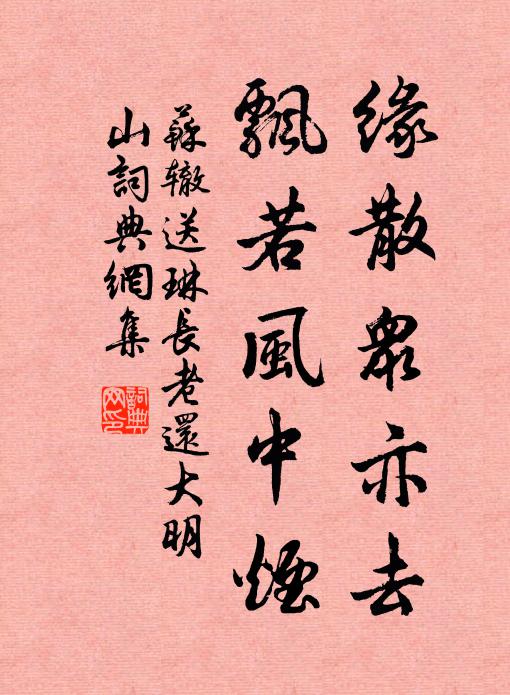 緣散眾亦去
飄若風中煙
蘇轍送琳長老還大明
山詞典網集
詞典
网印